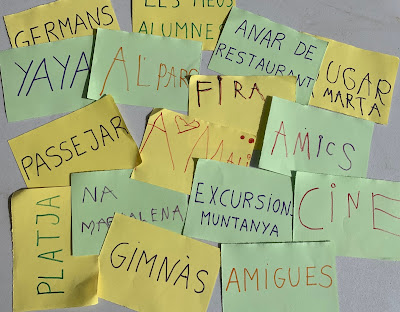 GERMANS
ELS MEUS
ALUMNES
ANAR DE
RESTAURANT
YAYA
AL PARC
FIRA
UGAR
MARTA
PASSEJAR
A
AMICS
PLATJA
NA
MAGDALENA
EXCURSION
MUNTANYA
CINE
GIMNÀS
AMIGUES